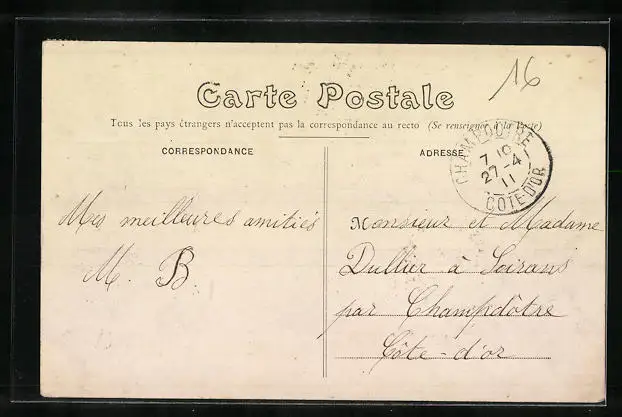 16
Carte Postale
Tous les pays étrangers n'acceptent pas la correspondance au recto (Se renseigner à la Poste)
CORRESPONDANCE
ADRESSE
CHAMPDOTRE
7 10
27-4
11
COTE-D'OR
Mes meilleures amitiés
M. B
Monsieur et Madame
Dullier à Soirans
par Champdôtre
Côte-d'or